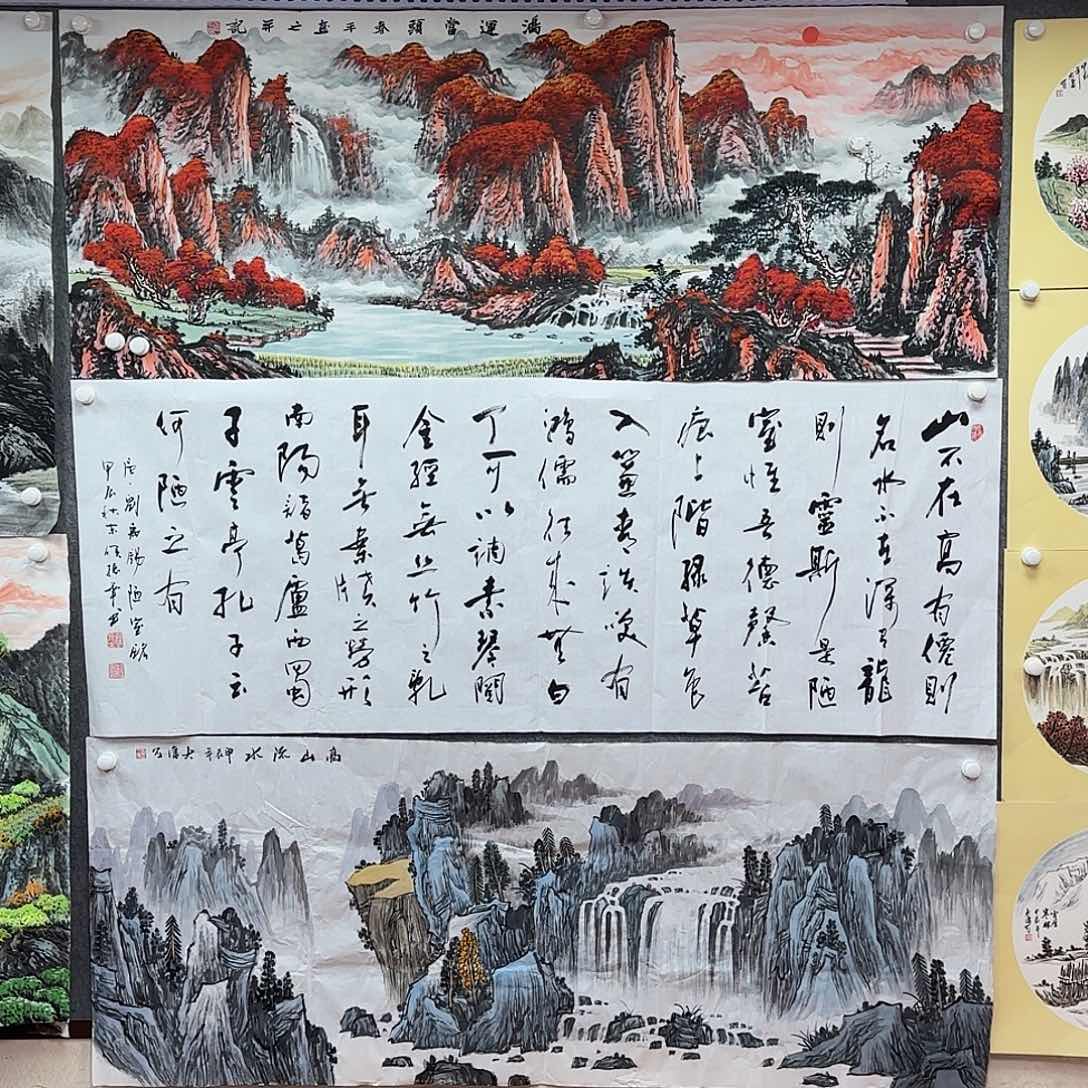 鴻運當頭
山不在高有僊則
名水不在深有龍
則靈斯是陋
室惟吾德馨苔
痕上階緑草色
入簾青談笑有
鴻儒往來無白
丁可以調素琴閱
金經無丝竹之亂
耳無案牘之勞形
南陽諸葛廬西蜀
子雲亭孔子云
何陋之有
唐劉禹錫陋室銘
甲辰秋
高山流水 甲辰年